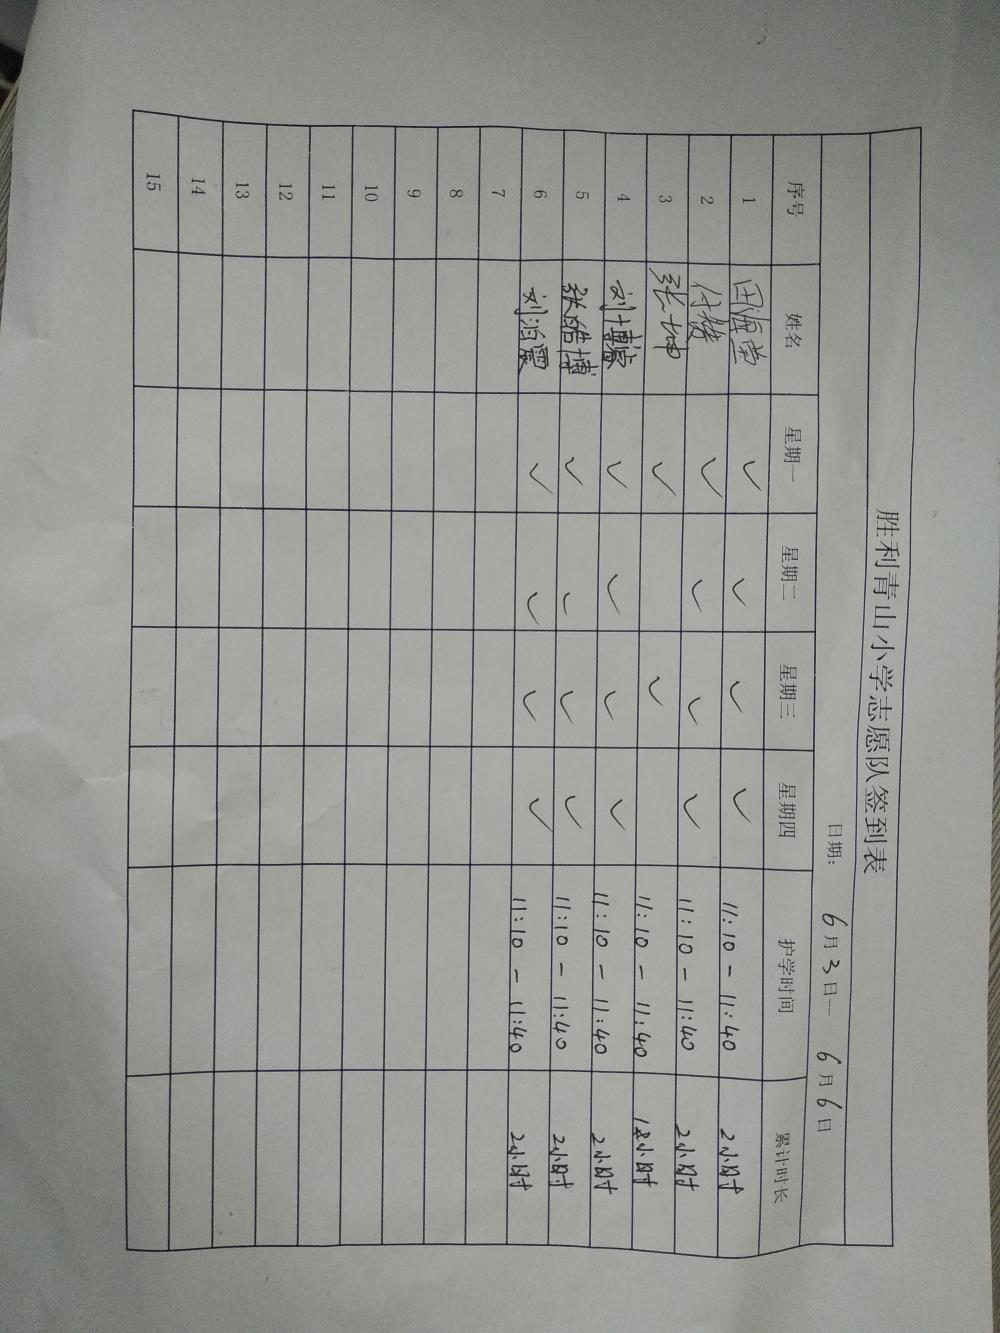 胜利青山小学志愿队签到表
日期: 6月3日—6月6日
序号 姓名 星期一 星期二 星期三 星期四 护学时间 累计时长
1 田海棠 ✓ ✓ ✓ ✓ 11:10-11:40 2小时
2 付楼 ✓ ✓ ✓ ✓ 11:10-11:40 2小时
3 张坤 ✓ ✓ 11:10-11:40 小时
4 刘博睿 ✓ ✓ ✓ ✓ 11:10-11:40 2小时
5 张皓博 ✓ ✓ ✓ ✓ 11:10-11:40 2小时
6 刘泊霖 ✓ ✓ ✓ ✓ 11:10-11:40 2小时
7
8
9
10
11
12
13
14
15